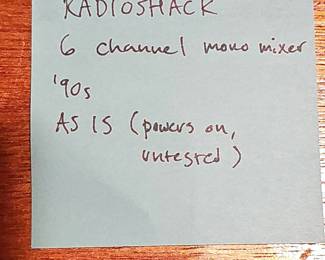 RADIOSHACK
6 channel mono mixer
'90s
AS IS (powers on,
untested)